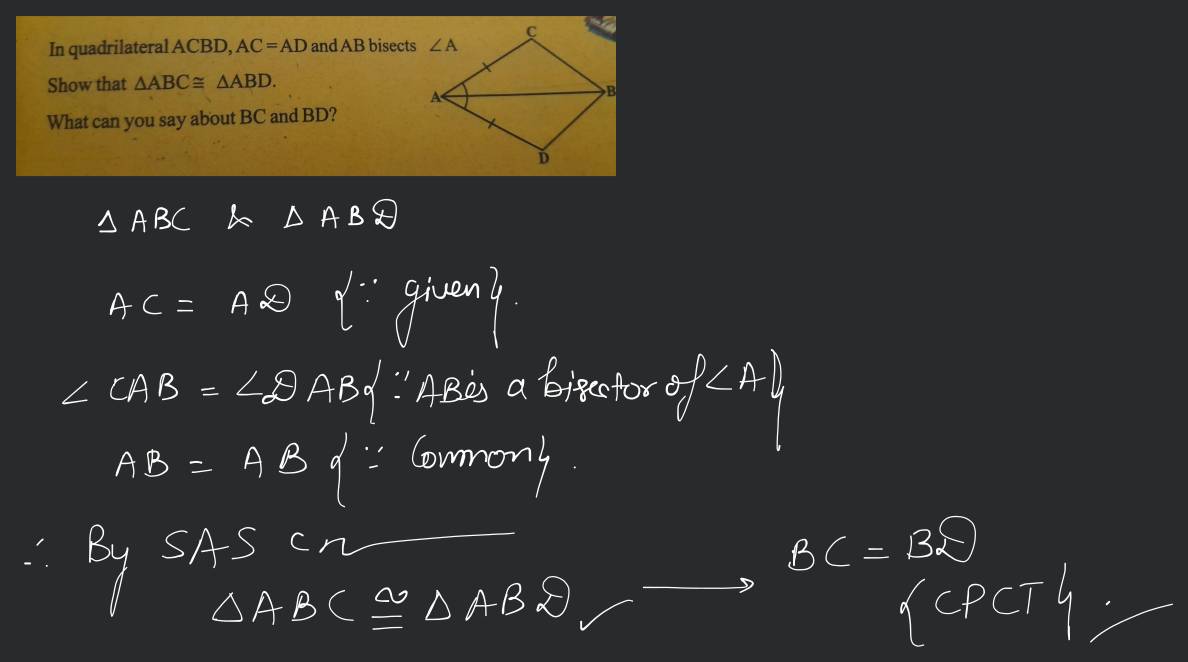 In quadrilateral ACBD, AC = AD and AB bisects ∠A
Show that ΔABC ≅ ΔABD.
What can you say about BC and BD?
C
A
B
D
Δ ABC & Δ ABD
AC = AD {∵ given}.
∠CAB = ∠DAB {∵ AB is a bisector of ∠A}
AB = AB {∵ Common}.
∴ By SAS
ΔABC ≅ ΔABD ✓ → BC = BD
{CPCT}.